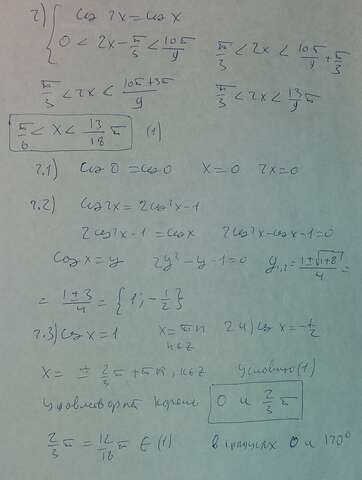 2) { cos 2x = cos x
0 < 2x - π/3 < 10π/9    π/3 < 2x < 10π/9 + π/3
π/3 < 2x < (10π+3π)/9    π/3 < 2x < 13/9 π
π/6 < x < 13/18 π (1)
2.1) cos 0 = cos 0    x = 0    2x = 0
2.2) cos 2x = 2cos²x - 1
2cos²x - 1 = cos x    2cos²x - cos x - 1 = 0
cos x = y    2y² - y - 1 = 0    y₁,₂ = (1 ± √(1+8))/4 =
= (1 ± 3)/4 = {1; -1/2}
2.3) cos x = 1    x = πn    2.4) cos x = -1/2
n∈Z
x = ± 2/3 π + πn, n∈Z    условию (1)
удовлетворят корень 0 и 2/3 π
2/3 π = 12/18 π ∈ (1)    в градусах 0 и 120°